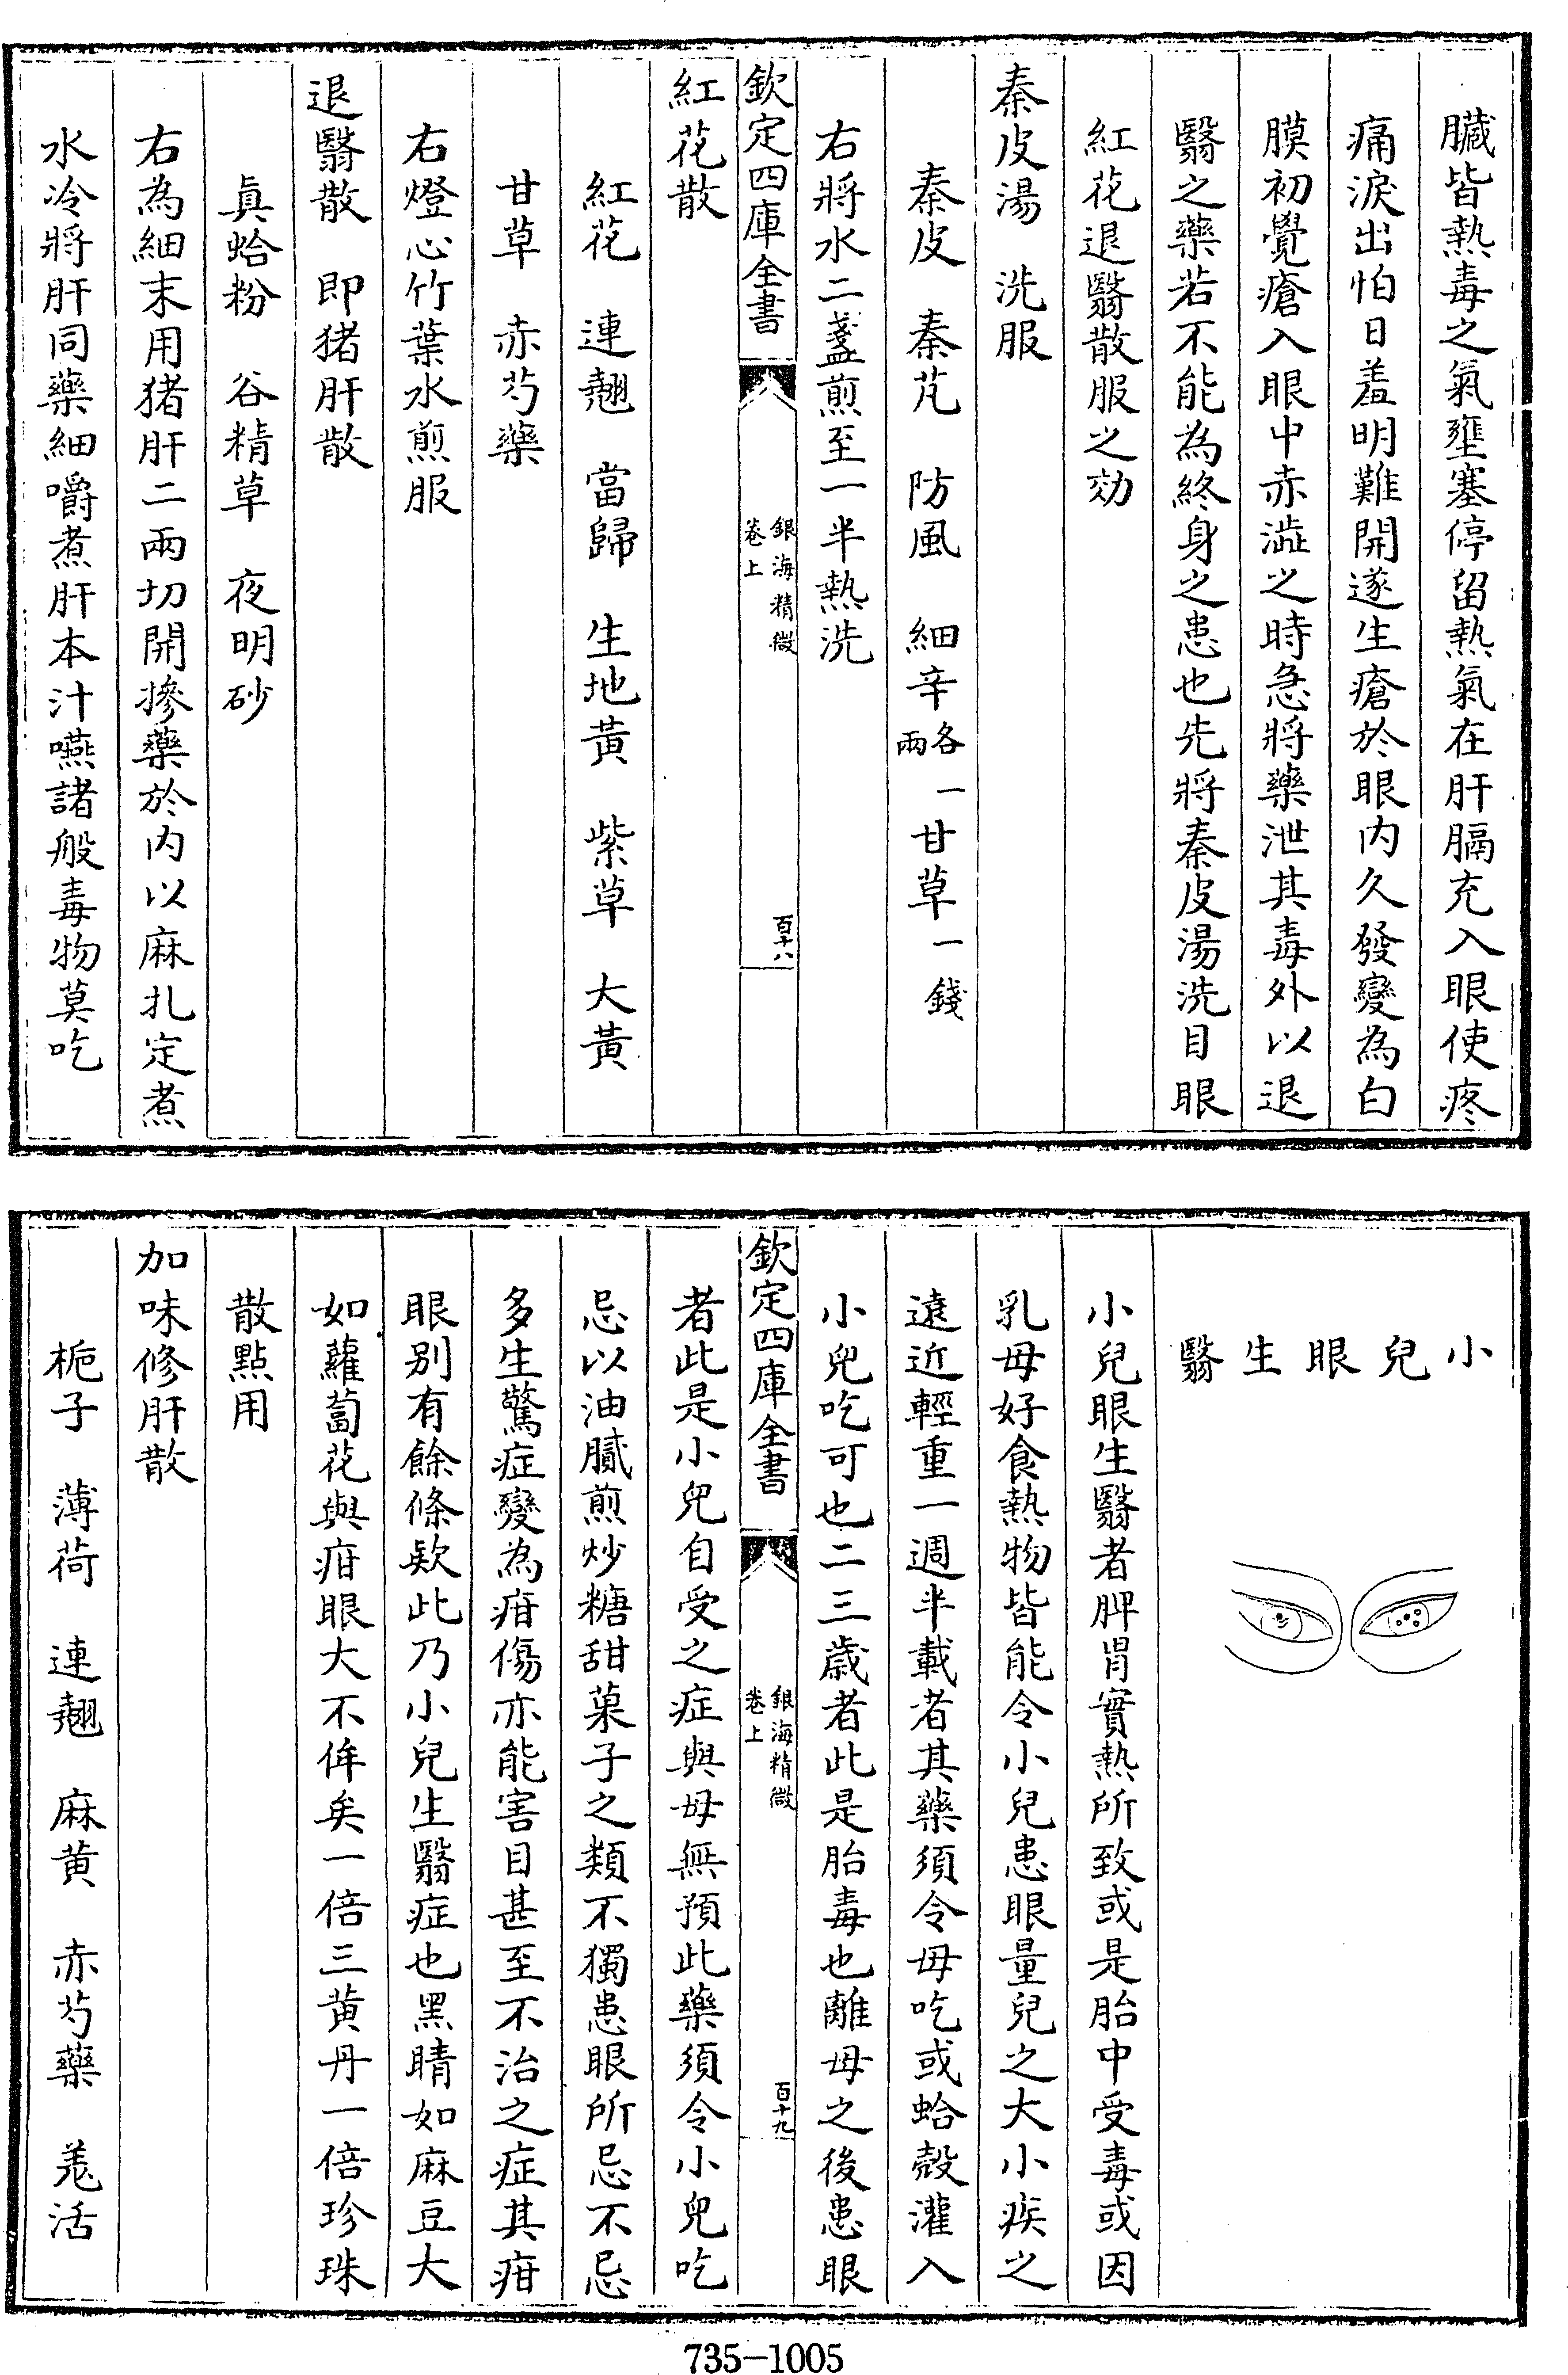 臟皆熱毒之氣壅塞停留熱氣在肝膈充入眼使疼
痛淚出怕日羞明難開遂生瘡於眼內久發變為白
膜初覺瘡入眼中赤澁之時急將藥泄其毒外以退
翳之藥若不能為終身之患也先將秦皮湯洗目眼
紅花退翳散服之効
秦皮湯　洗服
秦皮　秦艽　防風　細辛各一兩　甘草一錢
右將水二盞煎至一半熱洗
欽定四庫全書　銀海精微卷上　百十八
紅花散
紅花　連翹　當歸　生地黃　紫草　大黃
甘草　赤芍藥
右燈心竹葉水煎服
退翳散　即猪肝散
眞蛤粉　谷精草　夜明砂
右為細末用猪肝二兩切開摻藥於內以麻扎定煮
水冷將肝同藥細嚼煮肝本汁嚥諸般毒物莫吃
小兒眼生翳
小兒眼生翳者脾胃實熱所致或是胎中受毒或因
乳母好食熱物皆能令小兒患眼量兒之大小疾之
遠近輕重一週半載者其藥須令母吃或蛤殼灌入
小兒吃可也二三歲者此是胎毒也離母之後患眼
欽定四庫全書　銀海精微卷上　百十九
者此是小兒自受之症與母無預此藥須令小兒吃
忌以油膩煎炒糖甜菓子之類不獨患眼所忌不忌
多生驚症變為疳傷亦能害目甚至不治之症其疳
眼別有餘條欵此乃小兒生翳症也黑睛如麻豆大
如蘿蔔花與疳眼大不侔矣一倍三黃丹一倍珍珠
散點用
加味修肝散
梔子　薄荷　連翹　麻黃　赤芍藥　羗活
735-1005